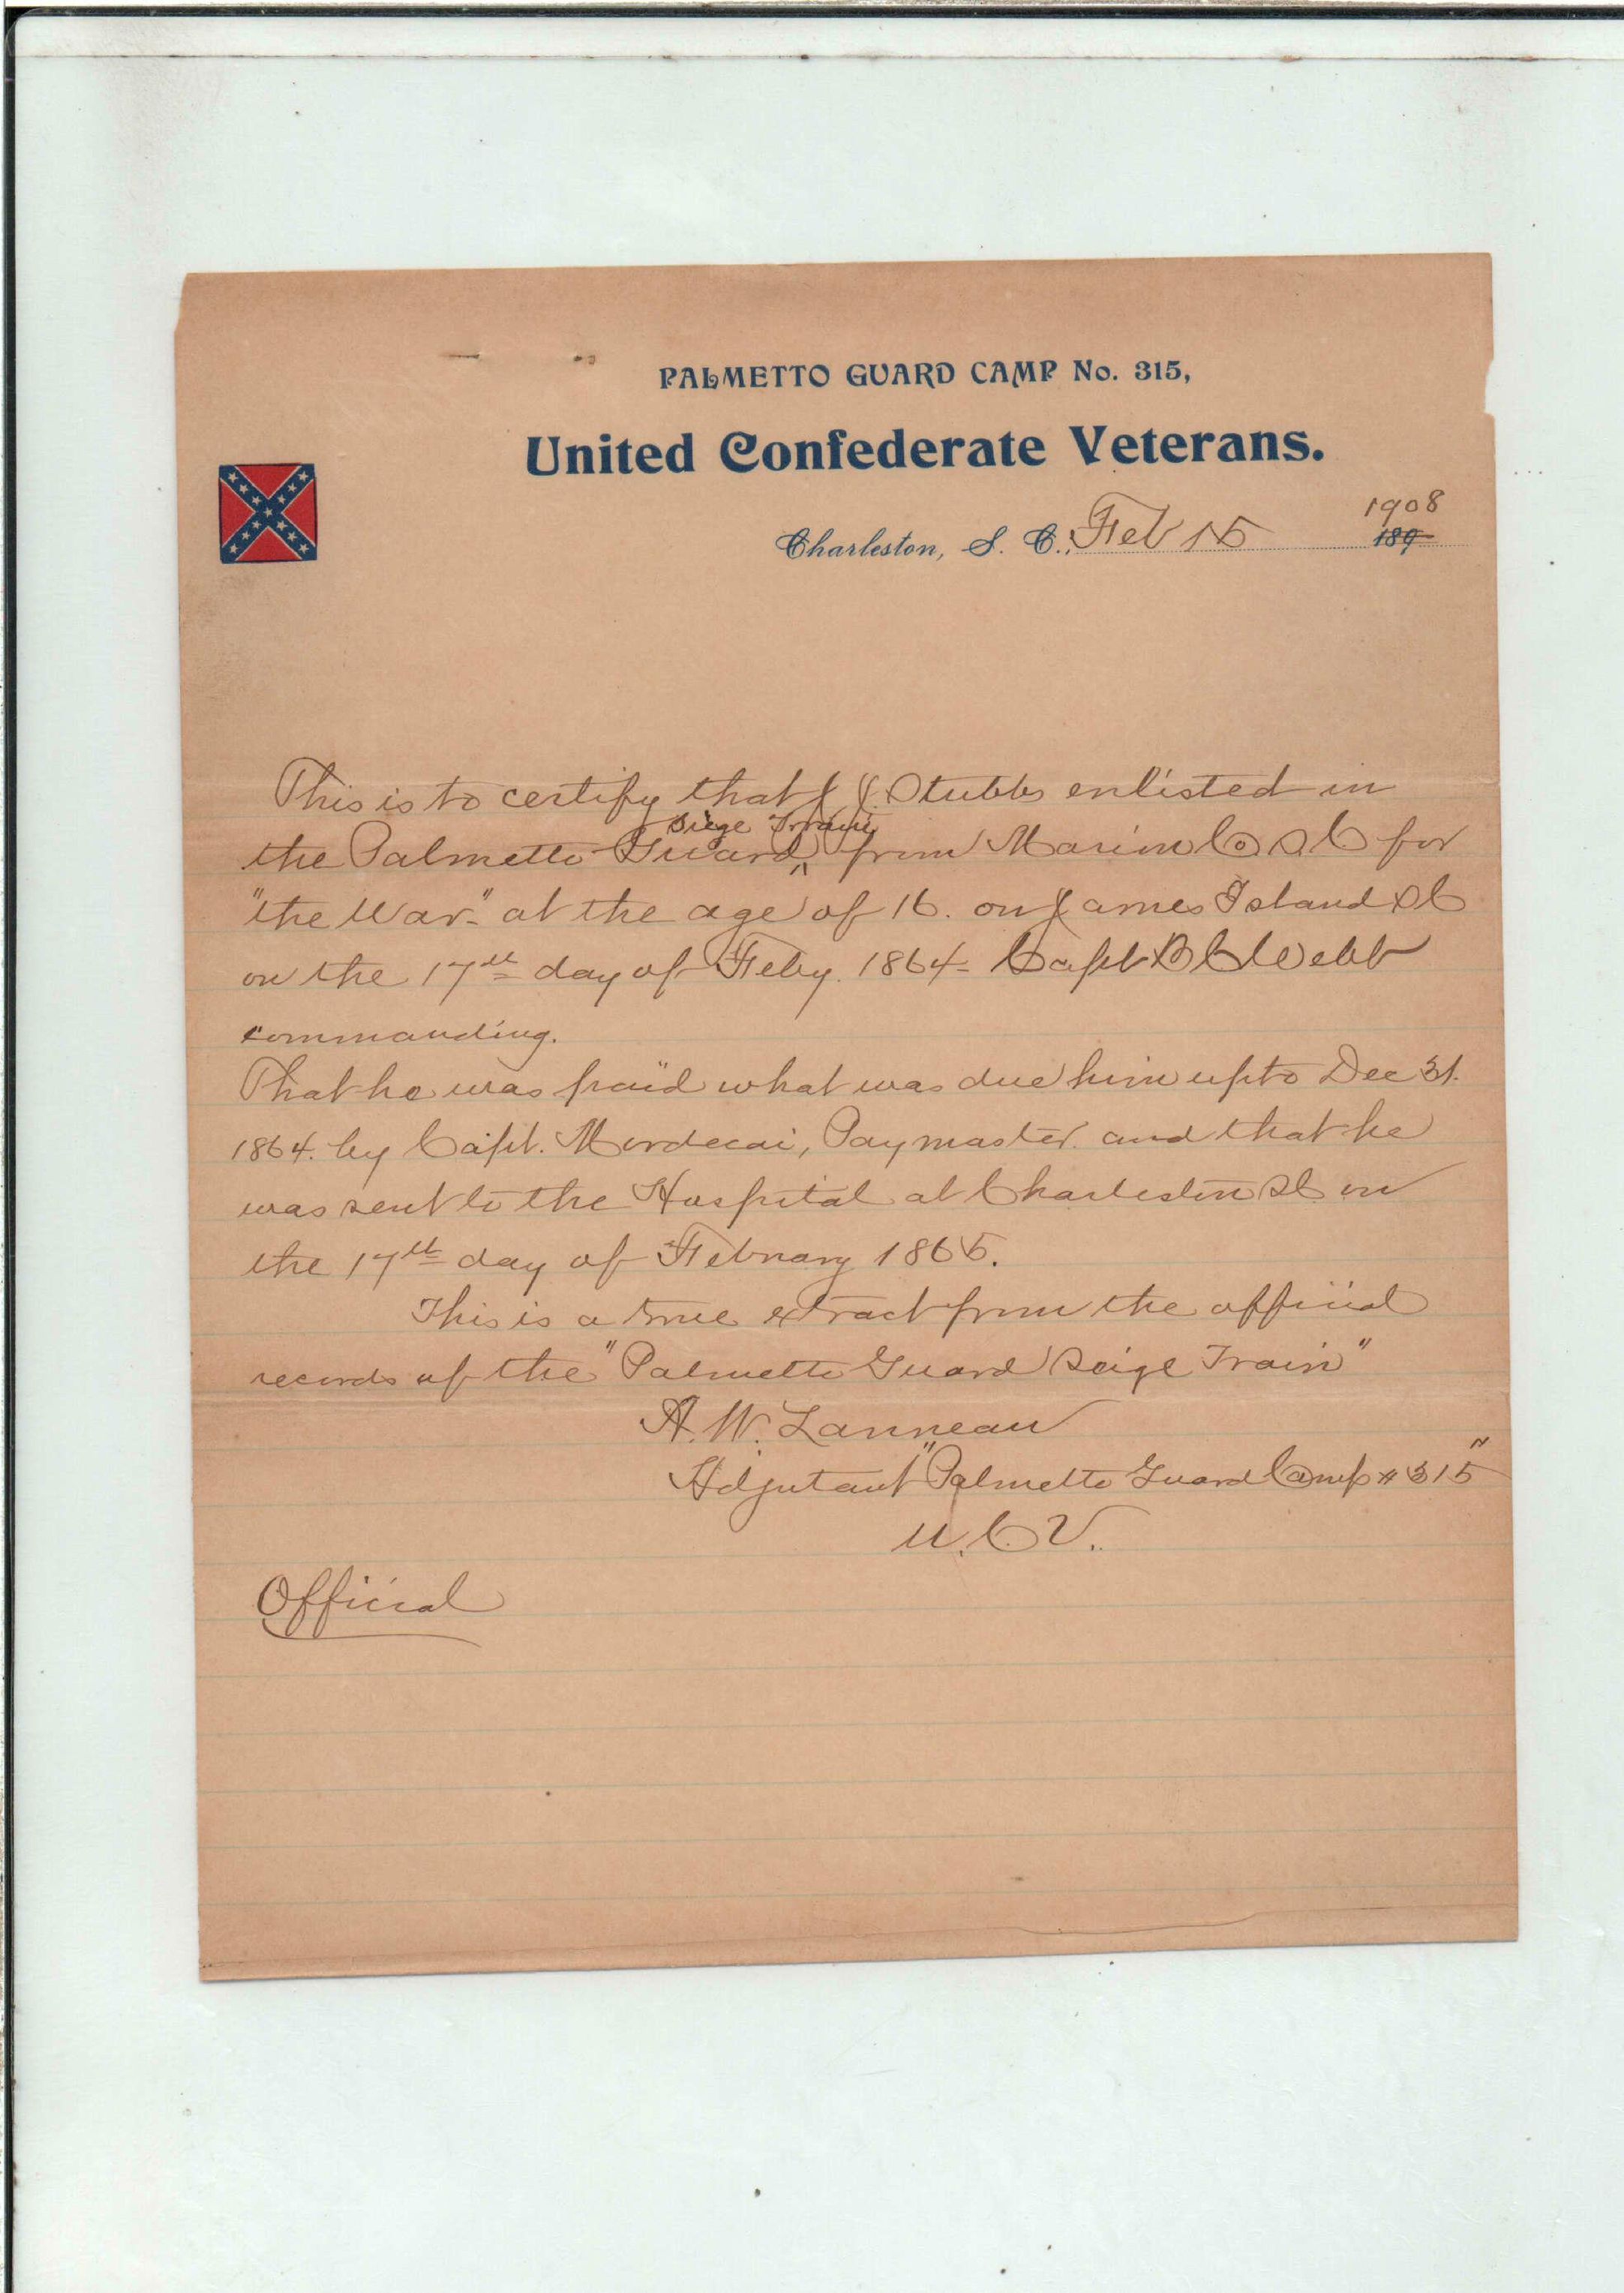 PALMETTO GUARD CAMP No. 315,
United Confederate Veterans.
Charleston, S. C., Feb 15 1908
189
This is to certify that J J. Stubbs enlisted in
Siege Train
the Palmetto Guard ^ from Marion Co S C for
"the War" at the age of 16. on James Island S C
on the 17th day of Feby. 1864 - Capt B C Webb
commanding.
That he was paid what was due him up to Dec 31.
1864. by Capt. Mordecai, Paymaster. and that he
was sent to the Hospital at Charleston SC on
the 17th day of February 1865.
This is a true extract from the official
records of the "Palmetto Guard Seige Train"
A. W. Lanneau
Adjutant "Palmetto Guard Camp # 315"
U. C. V.
Official